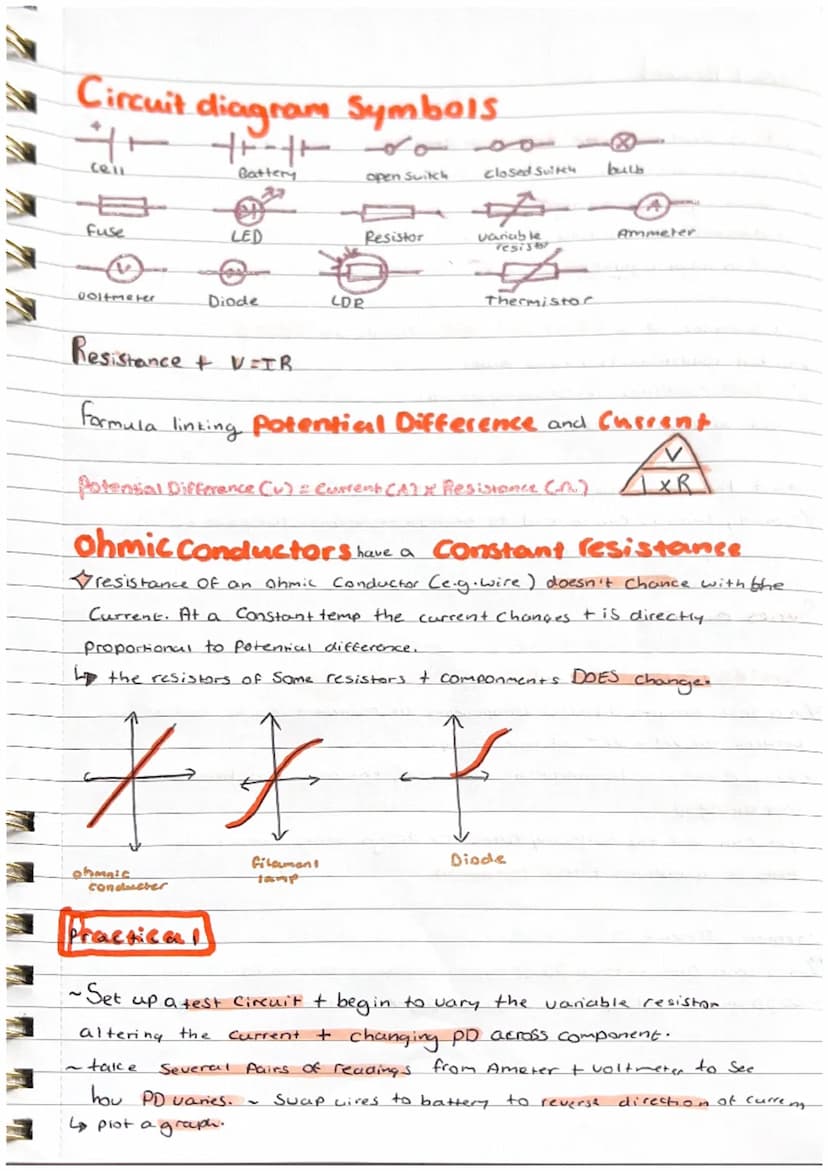 Circuit diagram Symbols
+
cell Battery open switch closed switch bulb
fuse LED Resistor variable resistor Ammeter
A
V
voltmeter Diode LDR Thermistor
Resistance + V=IR
formula linking Potential Difference and Current
V
Potential Difference (V) = Current (A) × Resistance (Ω) I × R
Ohmic Conductors have a Constant resistance
resistance of an ohmic Conductor (e.g. wire) doesn't chance with the
Current. At a Constant temp the current changes + is directly
proportional to Potential difference.
↳ the resistors of Some resistors + componments DOES change.
ohmnic conducter filament lamp Diode
Practical
~ Set up a test Circuit + begin to vary the variable resistor
altering the current + changing PD across component.
~ take Several Pairs of readings from Ameter + voltmeter to See
how PD varies. ~ Swap wires to battery to reverse direction of current
↳ plot a graph.